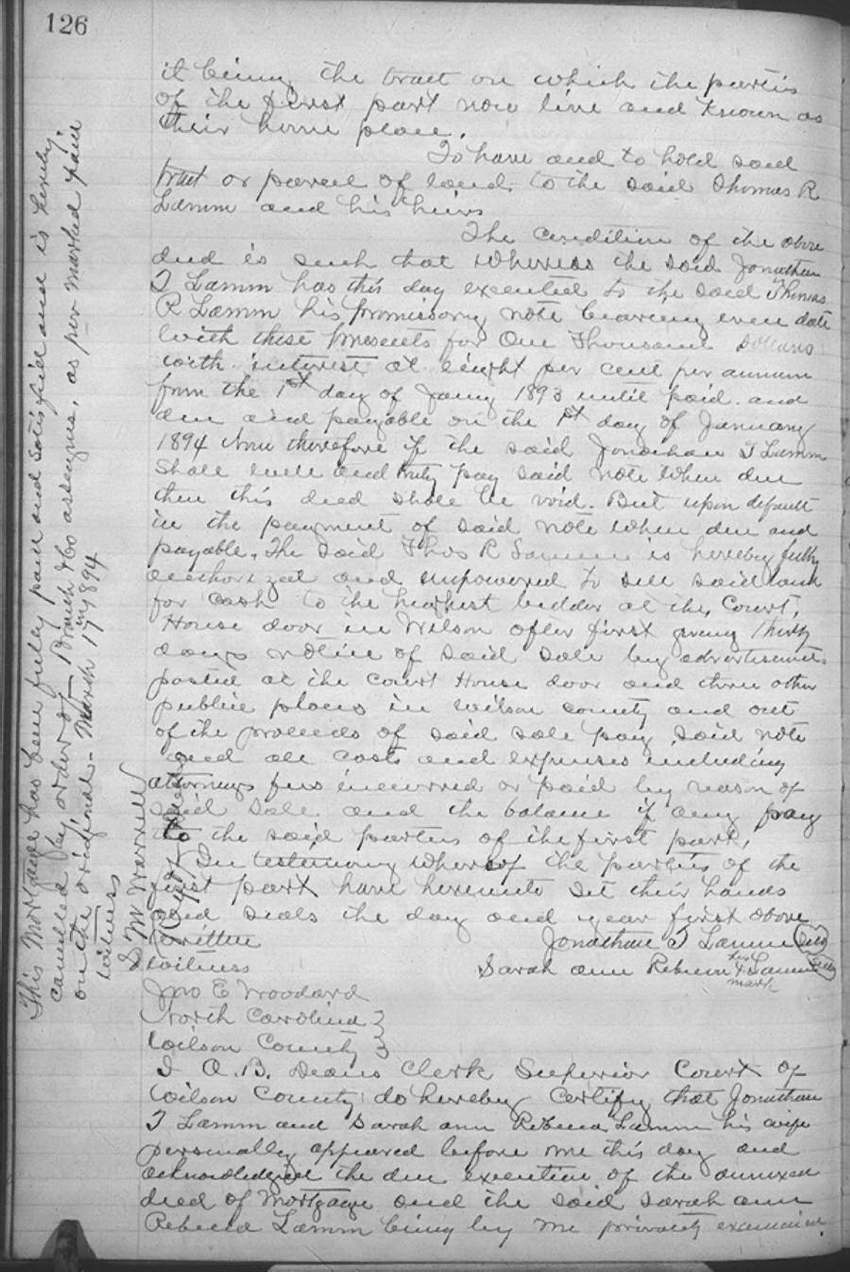 126
it being the tract on which the parties
of the first part now live and known as
their home place.
To have and to hold said
tract or parcel of land, to the said Thomas R
Lamm and his heirs
The Condition of the above
deed is such that whereas the said Jonathan
T Lamm has this day executed to the said Thomas
R Lamm his promissory note bearing even date
with these presents for One Thousand Dollars
with interest at eight per cent per annum
from the 1st day of Jany 1893 until paid. and
due and payable on the 1st day of January
1894 Now therefore if the said Jonathan T Lamm
Shall well and truly pay said note when due
then this deed shall be void. But upon default
in the payment of said note when due and
payable, The said Thos R Lamm is hereby fully
authorized and empowered to sell said land
for cash to the highest bidder at the Court,
House door in Wilson after first giving thirty
days notice of said sale by advertisements
posted at the Court House door and three other
public places in Wilson County and out
of the proceeds of said sale pay said note
and all costs and expenses including
attorneys fees incurred or paid by reason of
said sale and the balance if any pay
to the said parties of the first part,
In testimony whereof the parties of the
first part have hereunto set their hands
and seals the day and year first above
written
Jonathan T Lamm Seal
Witness
Sarah ann Rebecca his X mark Lamm Seal
Jno E Woodard
North Carolina }
Wilson County }
I A.B. Deans Clerk Superior Court of
Wilson County do hereby Certify that Jonathan
T Lamm and Sarah ann Rebecca Lamm his wife
personally appeared before me this day and
acknowledged the due execution of the annexed
deed of Mortgage and the said Sarah ann
Rebecca Lamm being by me privately examined
This Mortgage has been fully paid and satisfied and is hereby
cancelled by order of Branch &Co assignees, as per marked paid
on the original - March 17 1894
Witness